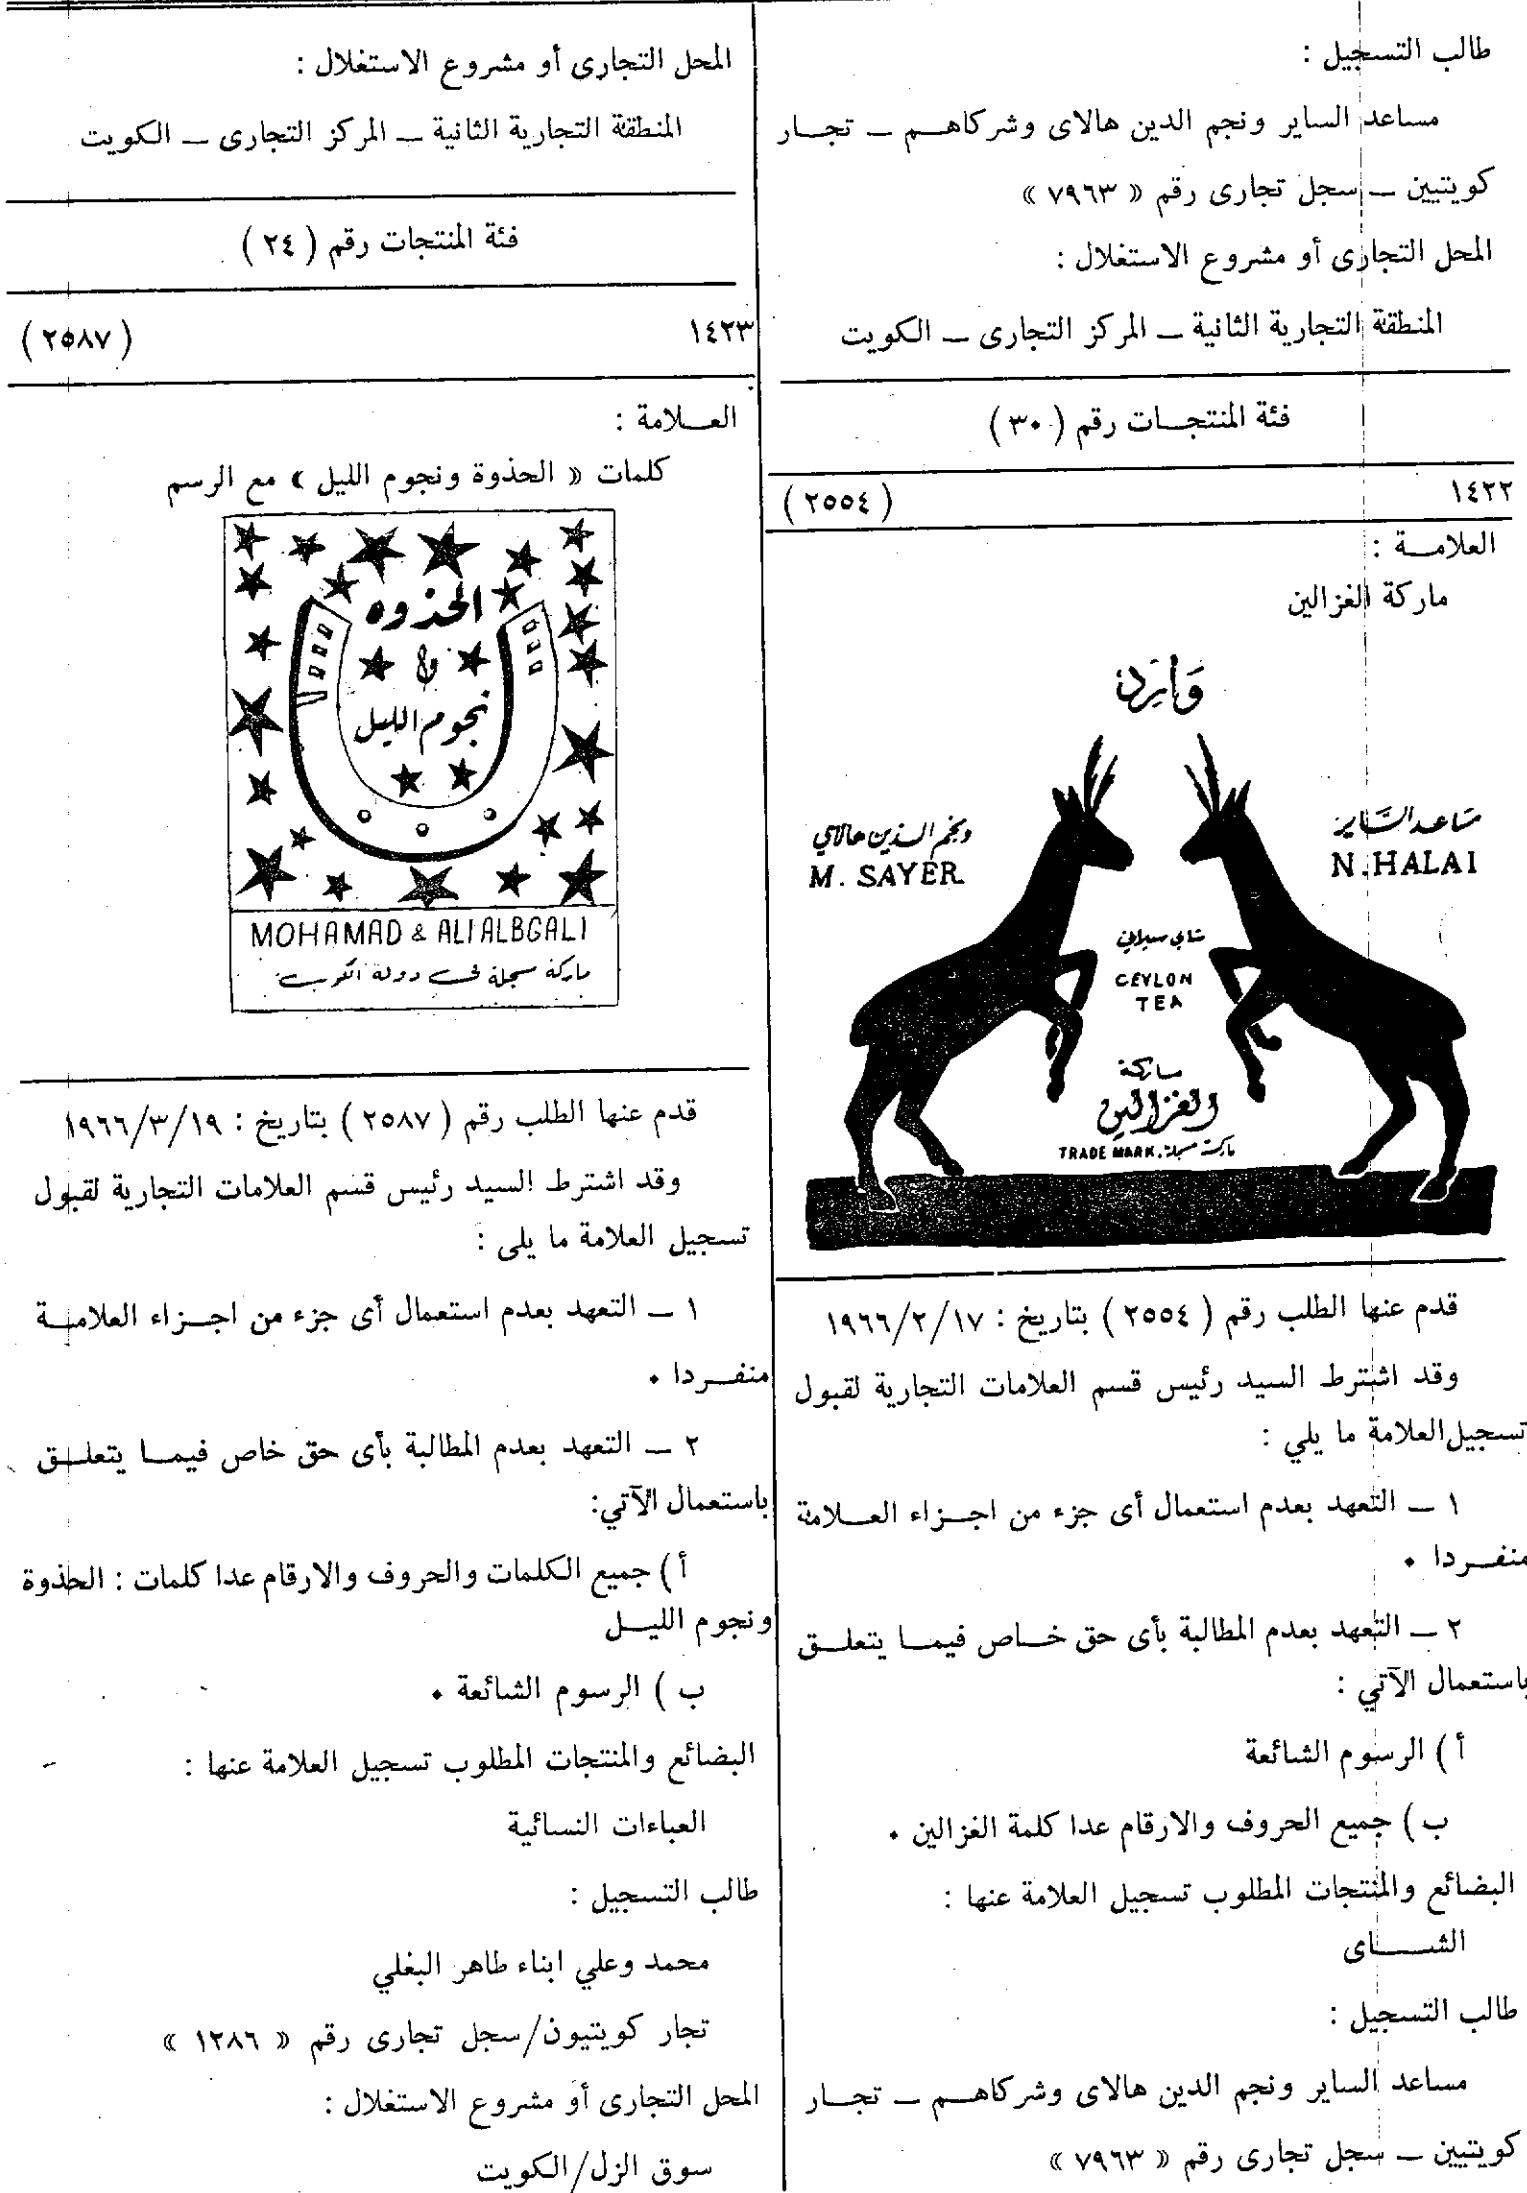 طالب التسجيل :
مساعد الساير ونجم الدين هالاى وشركاهــم ــ تجــار
كويتيين ــ سجل تجارى رقم « ٧٩٦٣ »
المحل التجارى أو مشروع الاستغلال :
المنطقة التجارية الثانية ــ المركز التجارى ــ الكويت
فئة المنتجــات رقم ( ٣٠ )
١٤٢٢ ( ٢٥٥٤ )
العلامــة :
ماركة الغزالين
وارد
مساعد الساير
N. HALAI
ونجم الدين هالاي
M. SAYER
شاي سيلاني
CEYLON
TEA
ماركة
الغزالين
ماركة مسجلة TRADE MARK.
قدم عنها الطلب رقم ( ٢٥٥٤ ) بتاريخ : ١٩٦٦/٢/١٧
وقد اشترط السيد رئيس قسم العلامات التجارية لقبول
تسجيل العلامة ما يلي :
١ ــ التعهد بعدم استعمال أى جزء من اجــزاء العــلامة
منفــردا .
٢ ــ التعهد بعدم المطالبة بأى حق خــاص فيمــا يتعلــق
باستعمال الآتي :
أ ) الرسوم الشائعة
ب ) جميع الحروف والارقام عدا كلمة الغزالين .
البضائع والمنتجات المطلوب تسجيل العلامة عنها :
الشــــاى
طالب التسجيل :
مساعد الساير ونجم الدين هالاى وشركاهــم ــ تجــار
كويتيين ــ سجل تجارى رقم « ٧٩٦٣ »
المحل التجارى أو مشروع الاستغلال :
المنطقة التجارية الثانية ــ المركز التجارى ــ الكويت
فئة المنتجات رقم ( ٢٤ )
١٤٢٣ ( ٢٥٨٧ )
العــلامة :
كلمات « الحذوة ونجوم الليل » مع الرسم
الحذوه
&
نجوم الليل
MOHAMAD & ALI ALBGALI
ماركة مسجلة في دولة الكويت
قدم عنها الطلب رقم ( ٢٥٨٧ ) بتاريخ : ١٩٦٦/٣/١٩
وقد اشترط السيد رئيس قسم العلامات التجارية لقبول
تسجيل العلامة ما يلى :
١ ــ التعهد بعدم استعمال أى جزء من اجــزاء العلامــة
منفــردا .
٢ ــ التعهد بعدم المطالبة بأى حق خاص فيمــا يتعلــق
باستعمال الآتي:
أ ) جميع الكلمات والحروف والارقام عدا كلمات : الحذوة
ونجوم الليــل
ب ) الرسوم الشائعة .
البضائع والمنتجات المطلوب تسجيل العلامة عنها :
العباءات النسائية
طالب التسجيل :
محمد وعلي ابناء طاهر البغلي
تجار كويتيون/سجل تجارى رقم « ١٢٨٦ »
المحل التجارى أو مشروع الاستغلال :
سوق الزل/الكويت